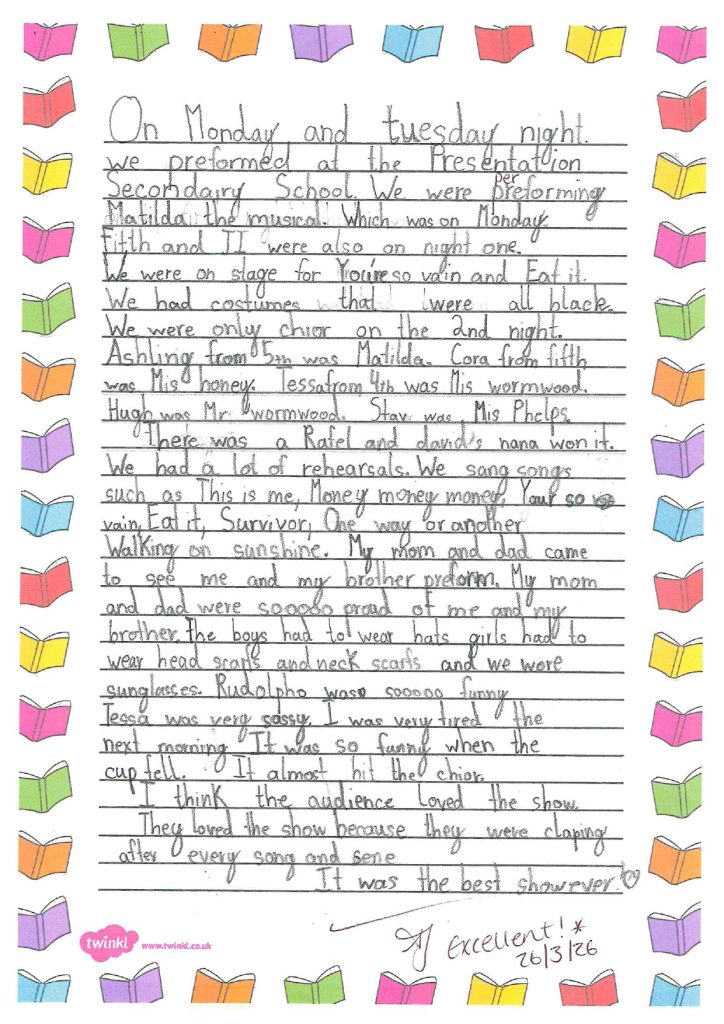 On Monday and tuesday night.
we preformed at the Presentation
Secondairy School. We were preforming
per
Matilda the musical. Which was on Monday.
Fifth and II were also on night one.
We were on stage for You're so vain and Eat it.
We had costumes that were all black.
We were only chior on the 2nd night.
Ashling from 5m was Matilda. Cora from fifth
was Mis honey. Tessa from 4th was Mis wormwood.
Hugh was Mr wormwood. Stav was Mis Phelps.
There was a Rafel and david's nana won it.
We had a lot of rehearsals. We sang songs
such as This is me, Money money money, Your so
vain, Eat it, Survivor, One way or another
Walking on sunshine. My mom and dad came
to see me and my brother preform. My mom
and dad were sooooo proud of me and my
brother. The boys had to wear hats girls had to
wear head scarfs and neck scarfs and we wore
sunglasses. Rudolpho was sooooo funny
Tessa was very sassy. I was very tired the
next morning It was so funny when the
cup fell. It almost hit the chior.
I think the audience loved the show.
They loved the show because they were claping
after every song and sene
It was the best show ever!
Excellent!*
26/3/26
twinkl www.twinkl.co.uk